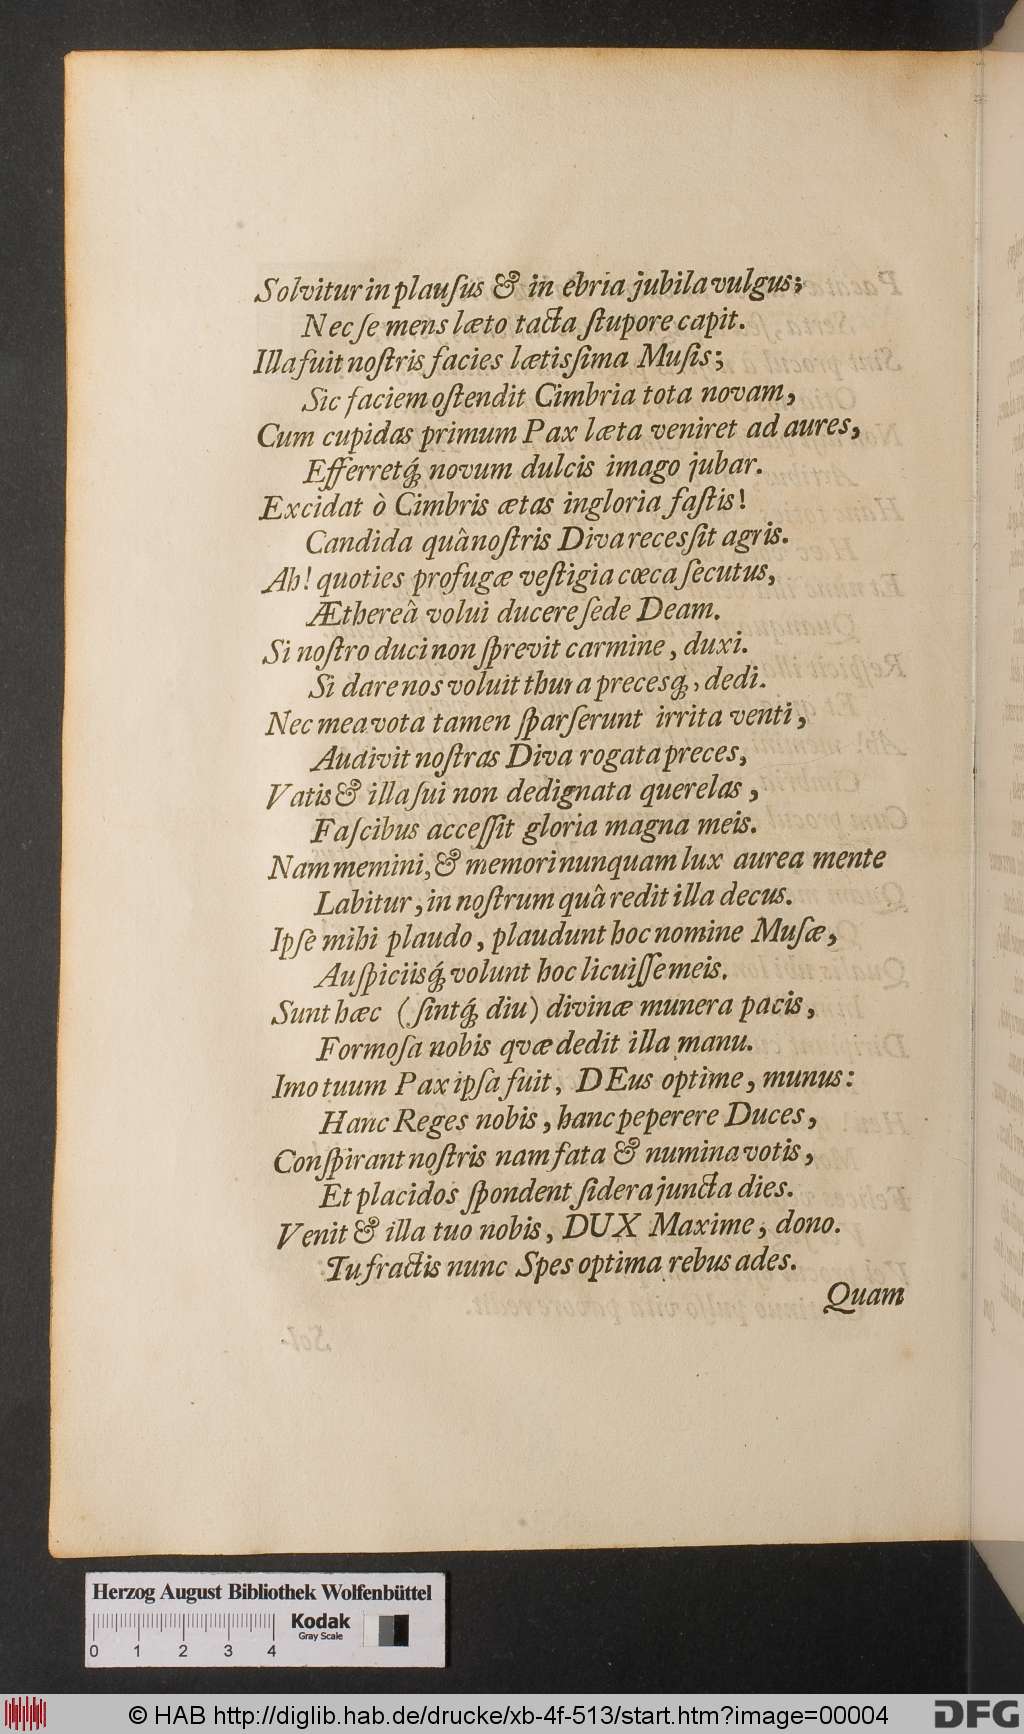 Solvitur in plauſus & in ebria jubila vulgus;
Nec ſe mens læto tacta ſtupore capit.
Illa fuit noſtris facies lætisſima Muſis;
Sic faciem oſtendit Cimbria tota novam,
Cum cupidas primum Pax læta veniret ad aures,
Efferretq́; novum dulcis imago jubar.
Excidat ò Cimbris ætas ingloria faſtis!
Candida quâ noſtris Diva recesſit agris.
Ah! quoties profugæ veſtigia cœca ſecutus,
Æthereâ volui ducere ſede Deam.
Si noſtro duci non ſprevit carmine, duxi.
Si dare nos voluit thura precesq́;, dedi.
Nec mea vota tamen ſparſerunt irrita venti,
Audivit noſtras Diva rogata preces,
Vatis & illa ſui non dedignata querelas,
Faſcibus acceſſit gloria magna meis.
Nam memini, & memori nunquam lux aurea mente
Labitur, in noſtrum quâ redit illa decus.
Ipſe mihi plaudo, plaudunt hoc nomine Muſæ,
Auſpiciisq́; volunt hoc licuiſſe meis.
Sunt hæc (ſintq́; diu) divinæ munera pacis,
Formoſa nobis qvæ dedit illa manu.
Imo tuum Pax ipſa fuit, DEus optime, munus:
Hanc Reges nobis, hanc peperere Duces,
Conſpirant noſtris nam fata & numina votis,
Et placidos ſpondent ſidera juncta dies.
Venit & illa tuo nobis, DUX Maxime, dono.
Tu fractis nunc Spes optima rebus ades.
Quam
Herzog August Bibliothek Wolfenbüttel
Kodak
Gray Scale
0 1 2 3 4
© HAB http://diglib.hab.de/drucke/xb-4f-513/start.htm?image=00004
DFG